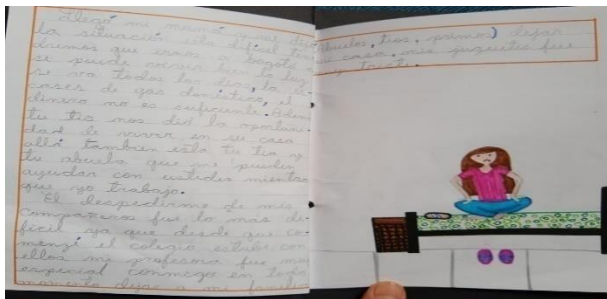 Llegó mi mamá y me dijo
la situación esta dificil ten-
dremos que irnos a bogota
se puede vivir bien la luz
se va todos los dias, la es-
cases de gas domestico, el
dinero no es suficiente. Ademas
tu tia nos dió la oportuni-
dad de vivir en su casa
allá tambien esta tu tio y
tu abuela que me pueden
ayudar con ustedes mientras
que yo trabajo.
El despedirme de mis
compañeros fue lo más di-
ficil ya que desde que co-
menzé el colegio estube con
ellos mi profesora fue muy
especial conmigo en todo
momento dejar a mi familia
(abuelos, tios, primos) dejar
mi casa, mis juguetes fue
muy triste.